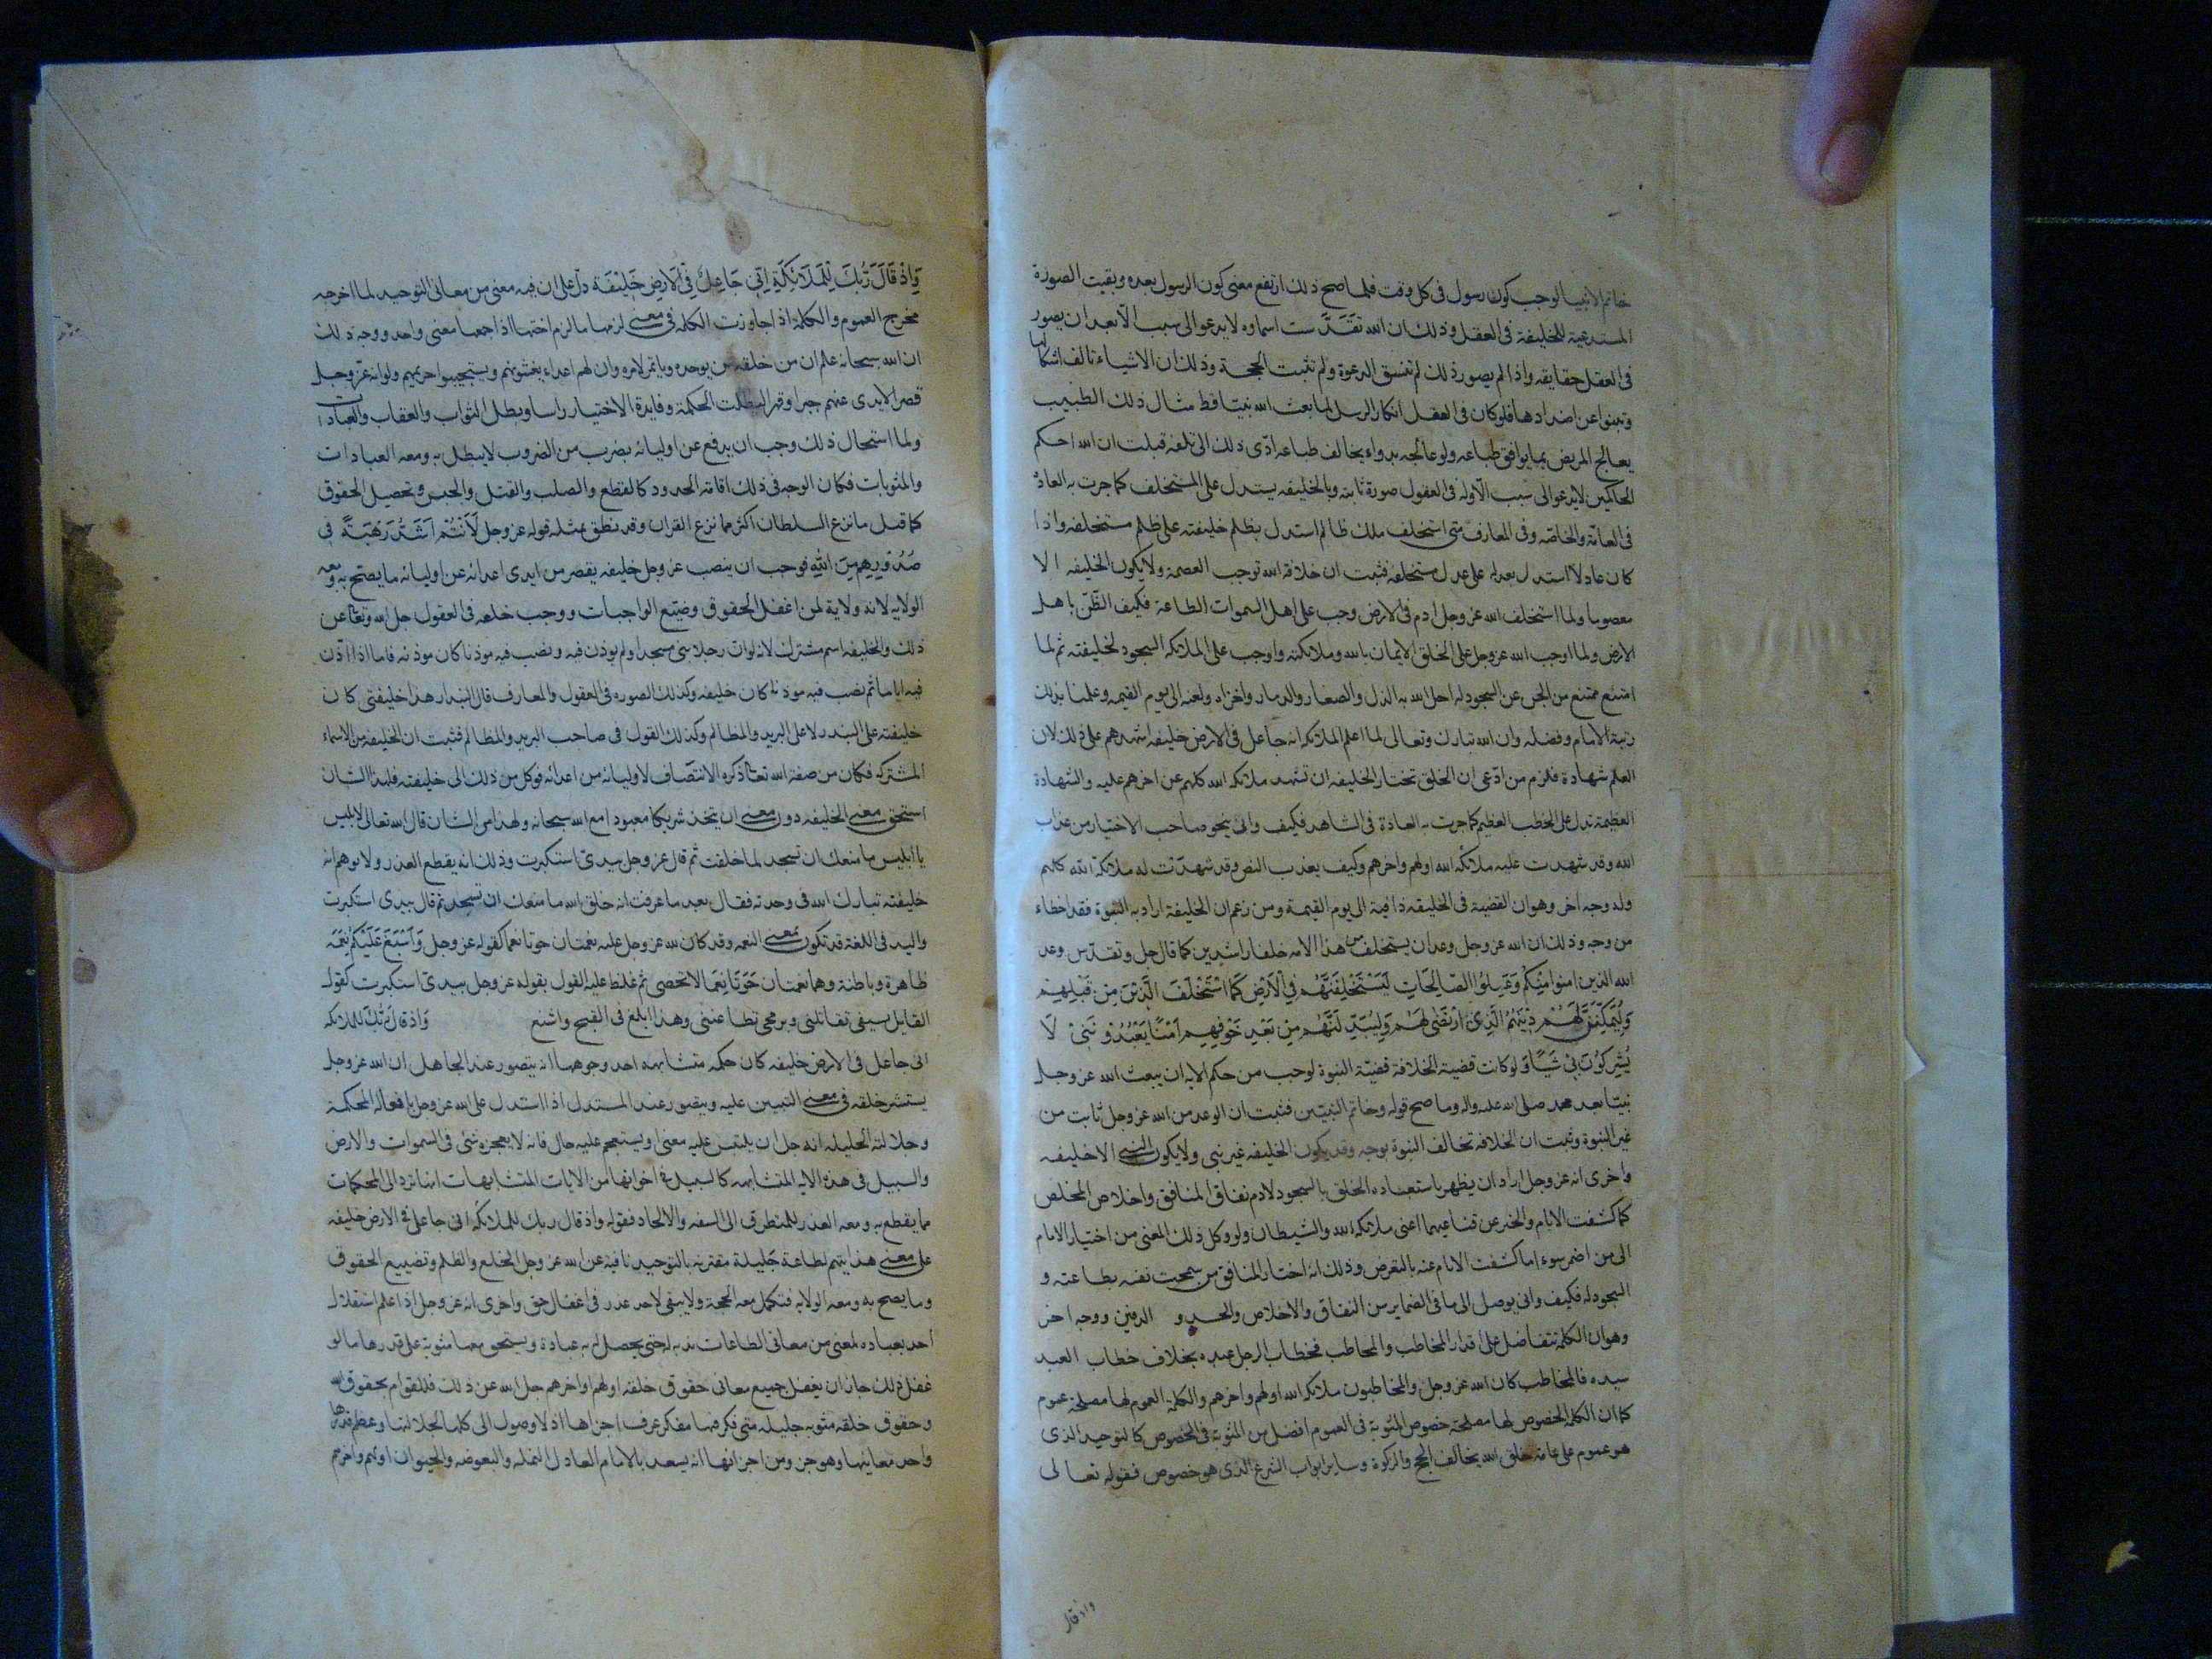 خاتم الانبيا لوجب كون رسول فى كل وقت فلما صح ذلك ارتفع معنى كون الرسول بعده وبقيت الصورة
المستدعية للخليفة فى العقل وذلك ان الله تقدست اسماوه لا يدعو الى سبب الا بعد ان يصور
فى العقل حقايقه واذا لم يصور ذلك لم تنسق الدعوة ولم تثبت الحجة وذلك ان الاشياء تالف اشكالها
وتنبو عن اضدادها فلو كان فى العقل انكار الرسل لما بعث الله نبيا قط مثال ذلك الطبيب
يعالج المريض بما يوافق طباعه ولو عالجه بدواء يخالف طباعه ادّى ذلك الى تلفه فثبت ان الله احكم
الحاكمين لا يدعو الى سبب الّا وله فى العقول صورة ثابته وبالخليفه يستدل على المستخلف كما جرت به العادة
فى العامّة والخاصّه وفى المعارف متى استخلف ملك ظالم استدل بظلم خليفته على ظلم مستخلفه واذا
كان عادلا استدل بعدله على عدل مستخلفه فثبت ان خلافة الله توجب العصمة ولا يكون الخليفه الا
معصوما ولما استخلف الله عز وجل ادم فى الارض وجب على اهل السموات الطاعة فكيف الظّن باهل
الارض ولما اوجب الله عز وجل على الخلق الايمان بالله وملائكته واوجب على الملائكه السجود لخليفته ثم لما
امتنع ممتنع من الجن عن السجود له احل الله به الذل والصغار والدمار واخزاه ولعنه الى يوم القيمه وعلمنا بذلك
رتبة الامام وفضله وان الله تبارك وتعالى لما اعلم الملائكه انه جاعل فى الارض خليفه اشهدهم على ذلك لان
العلم شهادة فلزم من ادّعى ان الخلق تختار الخليفه ان تشهد ملائكه الله كلهم عن اخرهم عليه والشهادة
العظيمة تدل على الخطب العظيم كما جرت به العادة فى الشاهد فكيف وانى ينجو صاحب الاختيار من عذاب
الله وقد شهدت عليه ملائكه الله اولهم واخرهم وكيف يعذب النص وقد شهدت له ملائكة الله كلهم
وله وجه اخر وهو ان القضية فى الخليفه باقية الى يوم القيمة ومن زعم ان الخليفة اراد به النبوة فقد اخطاء
من وجه وذلك ان الله عز وجل وعد ان يستخلف من هذا الامه خلفا راشدين كما قال جل وتقدّس وعد
الله الذين امنوا منكم وعملوا الصّالحات ليستخلفنّهم فى الارض كما استخلف الّذين من قبلهم
وليمكّننّ لهم دينهم الّذى ارتضى لهم وليبدّلنّهم من بعد خوفهم امنًا يعبدوننى لا
يشركون بى شيئًا ولو كانت قضية الخلافة قضيّة النبوة لوجب من حكم الايه ان يبعث الله عز وجل
نبيّا بعد محمد صلى الله عليه واله وما صح قوله وخاتم النبيّين فثبت ان الوعد من الله عز وجل ثابت من
غير النبوة وثبت ان الخلافة تخالف النبوة بوجه وقد يكون الخليفه غير نبى ولا يكون النبى الا خليفه
واخرى انه عز وجل اراد ان يظهر باستعباده الخلق بالسجود لادم نفاق المنافق واخلاص المخلص
كما كشفت الايام والخبر عن قناعيهما اعنى ملائكه الله والشيطان ولو وكل ذلك المعنى من اختيار الامام
الى من اضمر سوءا ما كشفت الايام عنه بالتعرض وذلك انه اختار المنافق من سمحت نفسه بطاعته و
السجود له فكيف وانى يوصل الى ما فى الضماير من النفاق والاخلاص والحسد و الدفين ووجه اخر
وهو ان الكلمة تتفاضل على اقدار المخاطب والمخاطب فخطاب الرجل عبده بخلاف خطاب العبد
سيده فالمخاطب كان الله عز وجل والمخاطبون ملائكه الله اولهم واخرهم والكلمة العموم لها مصلحة عموم
كما ان الكلمة الخصوص لها مصلحة خصوص والمثوبة فى العموم افضل من المثوبة فى الخصوص كالتوحيد الذى
هو عموم على عامة خلق الله يخالف الحج والزكوة وساير ابواب الشرع الذى هو خصوص فقوله تعالى
واذ قال
واذ قال ربّك للملائكة انّى جاعل فى الارض خليفة دلّ على ان فيه معنى من معانى التوحيد لما اخرجه
مخرج العموم والكلمة اذا جاوزت الكلمة فى معنى لزمها ما لزم اختها اذا جمعها معنى واحد ووجه ذلك
ان الله سبحانه علم ان من خلقه من يوحده وياتمر لامره وان لهم اعداء يعيبونهم ويستبيحوا حريمهم ولو انه عزّ وجل
قصر الايدى عنهم جبرا وقهرا لبطلت الحكمة وفايدة الاختيار راسا وبطل الثواب والعقاب والعبادات
ولما استحال ذلك وجب ان يدفع عن اوليائه بضرب من الضروب لا يبطل به ومعه العبادات
والمثوبات فكان الوجه فى ذلك اقامة الحدود كالقطع والصلب والقتل والحبس وتحصيل الحقوق
كما قيل ما نزع السلطان اكثر مما نزع القران وقد نطق بمثله قوله عز وجل لانتم اشدّ رهبة فى
صدورهم من الله فوجب ان ينصب عز وجل خليفه يقصر من ايدى اعدائه عن اوليائه ما يصح به ومعه
الولايه لانه لا ولاية لمن اغفل الحقوق وضيّع الواجبات ووجب خلعه فى العقول جل الله وتعالى عن
ذلك والخليفه اسم مشترك لانه لو ان رجلا بنى مسجدا ولم يوذن فيه ونصب فيه موذنا كان موذنه فاما اذا اذّن
فيه اياما ثم نصب فيه موذنا كان خليفه وكذلك الصوره فى العقول والمعارف قال البندار هذا خليفتى كان
خليفته على البندره لا على البريد والمظالم وكذلك القول فى صاحب البريد والمظالم فثبت ان الخليفه من الاسماء
المشتركه فكان من صفة الله تعالى ذكره الانتصاف لاوليائه من اعدائه فوكل من ذلك الى خليفته فلهذا الشان
استحق معنى الخليفه دون معنى ان يتخذ شريكا معبودا مع الله سبحانه ولهذا من الشان قال الله تعالى لابليس
يا ابليس ما منعك ان تسجد لما خلقت ثم قال عز وجل بيدىّ استكبرت وذلك انه يقطع العذر ولا يوهم انه
خليفته تبارك الله فى وحدته فقال بعد ما عرفت انه خلق الله ما منعك ان تسجد ثم قال بيدى استكبرت
واليد فى اللغة قد تكون بمعنى النعمه وقد كان لله عز وجل عليه نعمتان حوتا نعما كقوله عز وجل واسبغ عليكم نعمه
ظاهرة وباطنة وهما نعمتان حوتا نعما لا تحصى ثم غلظ عليه القول بقوله عز وجل بيدىّ استكبرت كقول
القايل بسيفى تقاتلنى وبرمحى تطاعننى وهذا ابلغ فى القبح واشنع واذ قال ربّك للملائكه
انى جاعل فى الارض خليفه كان حكمه متشابهه احد وجوهها انه يتصور عند الجاهل ان الله عز وجل
يستشير خلقه فى معنى التبس عليه ويتصور عند المستدل اذا استدل على الله عز وجل بافعاله المحكمة
وجلالته الجليله انه جل ان يلتبس عليه معنى او يستعجم عليه حال فانه لا يعجزه شئ فى السموات والارض
والسبيل فى هذه الايه المتشابهه كالسبيل فى اخواتها من الايات المتشابهات انها ترد الى المحكمات
مما يقطع به ومعه العذر للمتطرق الى السفه والالحاد فقوله واذ قال ربك للملائكه انى جاعل فى الارض خليفه
على معنى هدايتهم لطاعة جليلة مقترنه بالتوحيد نافية عن الله عز وجل الخلع والظلم وتضييع الحقوق
وما يصح به ومعه الولايه فتكمل معه الحجة ولا يبقى لاحد عذر فى اغفال حق واخرى انه عز وجل اذا علم استقلال
احد بعباده لمعنى من معانى الطاعات ندبه له حتى يحصل له به عبادة ويستحق معها مثوبة على قدرها ما لو
غفل ذلك جاز ان يغفل جميع معانى حقوق خلقه اولهم واخرهم جل الله عن ذلك فللقوام بحقوق الله
وحقوق خلقه مثوبه جليله متى فكر فيها مفكر عرف اجزاها اذ لا وصول الى كلها لجلالتها وعظم قدرها
واحد معانيها وهو جزء من اجزائها انه يسعد بالامام العادل النمله والبعوضه والحيوان اولهم واخرهم